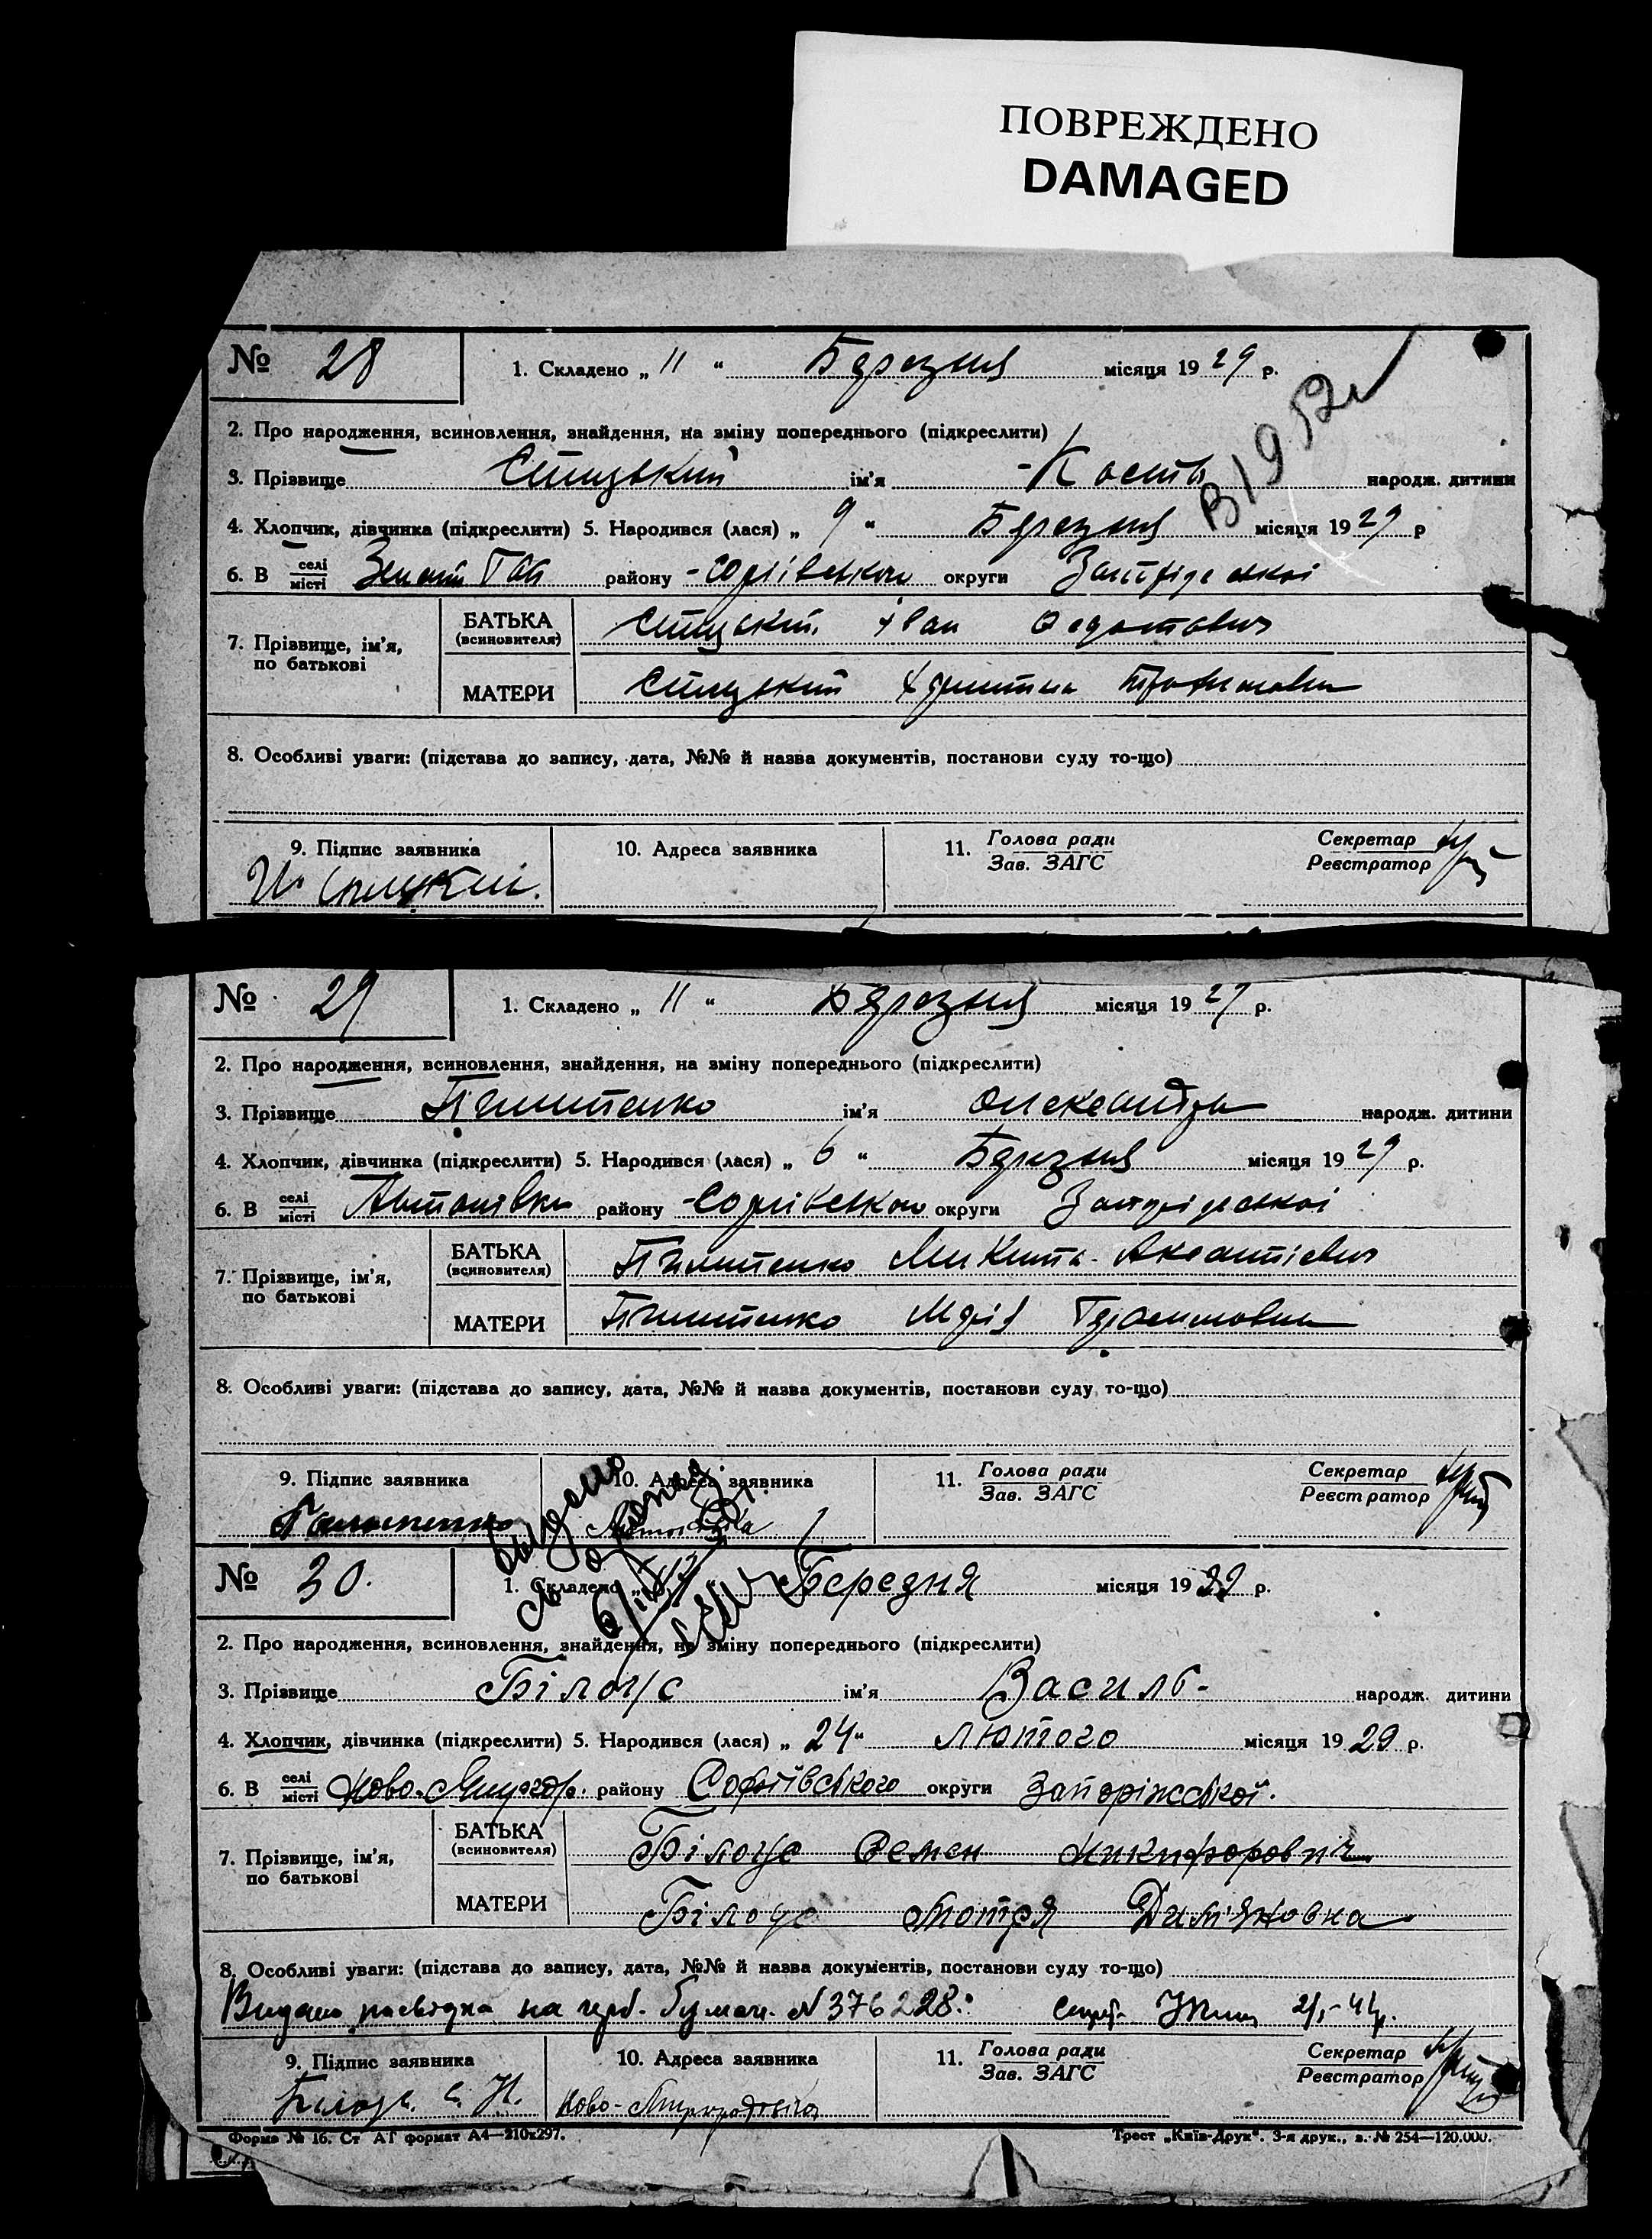 ПОВРЕЖДЕНО
DAMAGED
№ 28
1. Складено „ 11 “ Березня місяця 19 29 р.
2. Про народження, всиновлення, знайдення, на зміну попереднього (підкреслити)
3. Прізвище ім'я Кость народж. дитини
4. Хлопчик, дівчинка (підкреслити) 5. Народився (лася) „ 9 “ Березня місяця 19 29 р
6. В селі місті Гай району округи Запорізської
7. Прізвище, ім'я, по батькові
БАТЬКА (всиновителя) Іван Федотович
МАТЕРИ Христина Трофимовна
8. Особливі уваги: (підстава до запису, дата, №№ й назва документів, постанови суду то-що)
9. Підпис заявника 10. Адреса заявника 11. Голова ради Зав. ЗАГС Секретар Реєстратор
№ 29
1. Складено „ 11 “ Березня місяця 19 29 р.
2. Про народження, всиновлення, знайдення, на зміну попереднього (підкреслити)
3. Прізвище Пилипенко ім'я Олександра народж. дитини
4. Хлопчик, дівчинка (підкреслити) 5. Народився (лася) „ 6 “ Березня місяця 19 29 р.
6. В селі місті Антонівка району округи Запорізської
7. Прізвище, ім'я, по батькові
БАТЬКА (всиновителя) Пилипенко Микита Аксентієвич
МАТЕРИ Пилипенко Марія Герасимовна
8. Особливі уваги: (підстава до запису, дата, №№ й назва документів, постанови суду то-що)
9. Підпис заявника 10. Адреса заявника 11. Голова ради Зав. ЗАГС Секретар Реєстратор
Пилипенко
№ 30.
1. Складено „ Березня місяця 19 29 р.
2. Про народження, всиновлення, знайдення, на зміну попереднього (підкреслити)
3. Прізвище Білоус ім'я Василь народж. дитини
4. Хлопчик, дівчинка (підкреслити) 5. Народився (лася) „ 24 “ лютого місяця 19 29 р.
6. В селі місті району Софіївського округи Запоріжської.
7. Прізвище, ім'я, по батькові
БАТЬКА (всиновителя) Білоус Семен Никифоров ич
МАТЕРИ Білоус Мотря Дим'яновна
8. Особливі уваги: (підстава до запису, дата, №№ й назва документів, постанови суду то-що)
Видано посвідка на герб. бумаги. № 376228.
9. Підпис заявника 10. Адреса заявника 11. Голова ради Зав. ЗАГС Секретар Реєстратор
Білоус. С. Н.
Форма № 16. Ст АТ формат А4—210x297.
Трест „Київ-Друк“. 3-я друк., з. № 254—120.000.